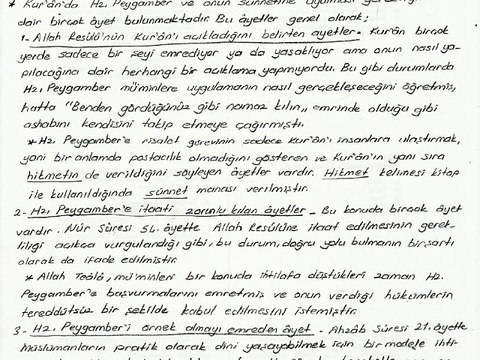 * Kur'ân'da Hz. Peygamber ve onun sünnetine
dair birçok âyet bulunmaktadır. Bu âyetler genel olarak;
1- Allah Resûlü'nün Kur'ân'ı açıkladığını belirten âyetler - Kur'ân birçok
yerde sadece bir şeyi emrediyor ya da yasaklıyor ama onun nasıl ya-
pılacağına dair herhangi bir açıklama yapmıyordu. Bu gibi durumlarda
Hz. Peygamber mü'minlere uygulamanın nasıl gerçekleşeceğini öğretmiş,
hatta "Benden gördüğünüz gibi namaz kılın" emrinde olduğu gibi
ashabını kendisini takip etmeye çağırmıştı.
* Hz. Peygamber'e risalet görevinin sadece Kur'ân'ı insanlara ulaştırmak,
yani bir anlamda postacılık olmadığını gösteren ve Kur'ân'ın yanı sıra
hikmetin de verildiğini söyleyen âyetler vardır. Hikmet kelimesi kitap
ile kullanıldığında sünnet manası verilmiştir.
2- Hz. Peygamber'e itaati zorunlu kılan âyetler - Bu konuda birçok âyet
vardır. Nûr Sûresi 54. âyette Allah Resûlüne itaat edilmesinin gerek-
liliği açıkça vurgulandığı gibi, bu durum, doğru yolu bulmanın bir şartı
olarak da ifade edilmiştir.
* Allah Teâlâ, mü'minleri bir konuda ihtilafa düştükleri zaman Hz.
Peygamber'e başvurmalarını emretmiş ve onun verdiği hükümlerin
tereddütsüz bir şekilde kabul edilmesini istemiştir.
3- Hz. Peygamber'i örnek almayı emreden âyet - Ahzâb Sûresi 21. âyette
müslümanların pratik olarak dini yaşayabilmek için bir modele ihti-